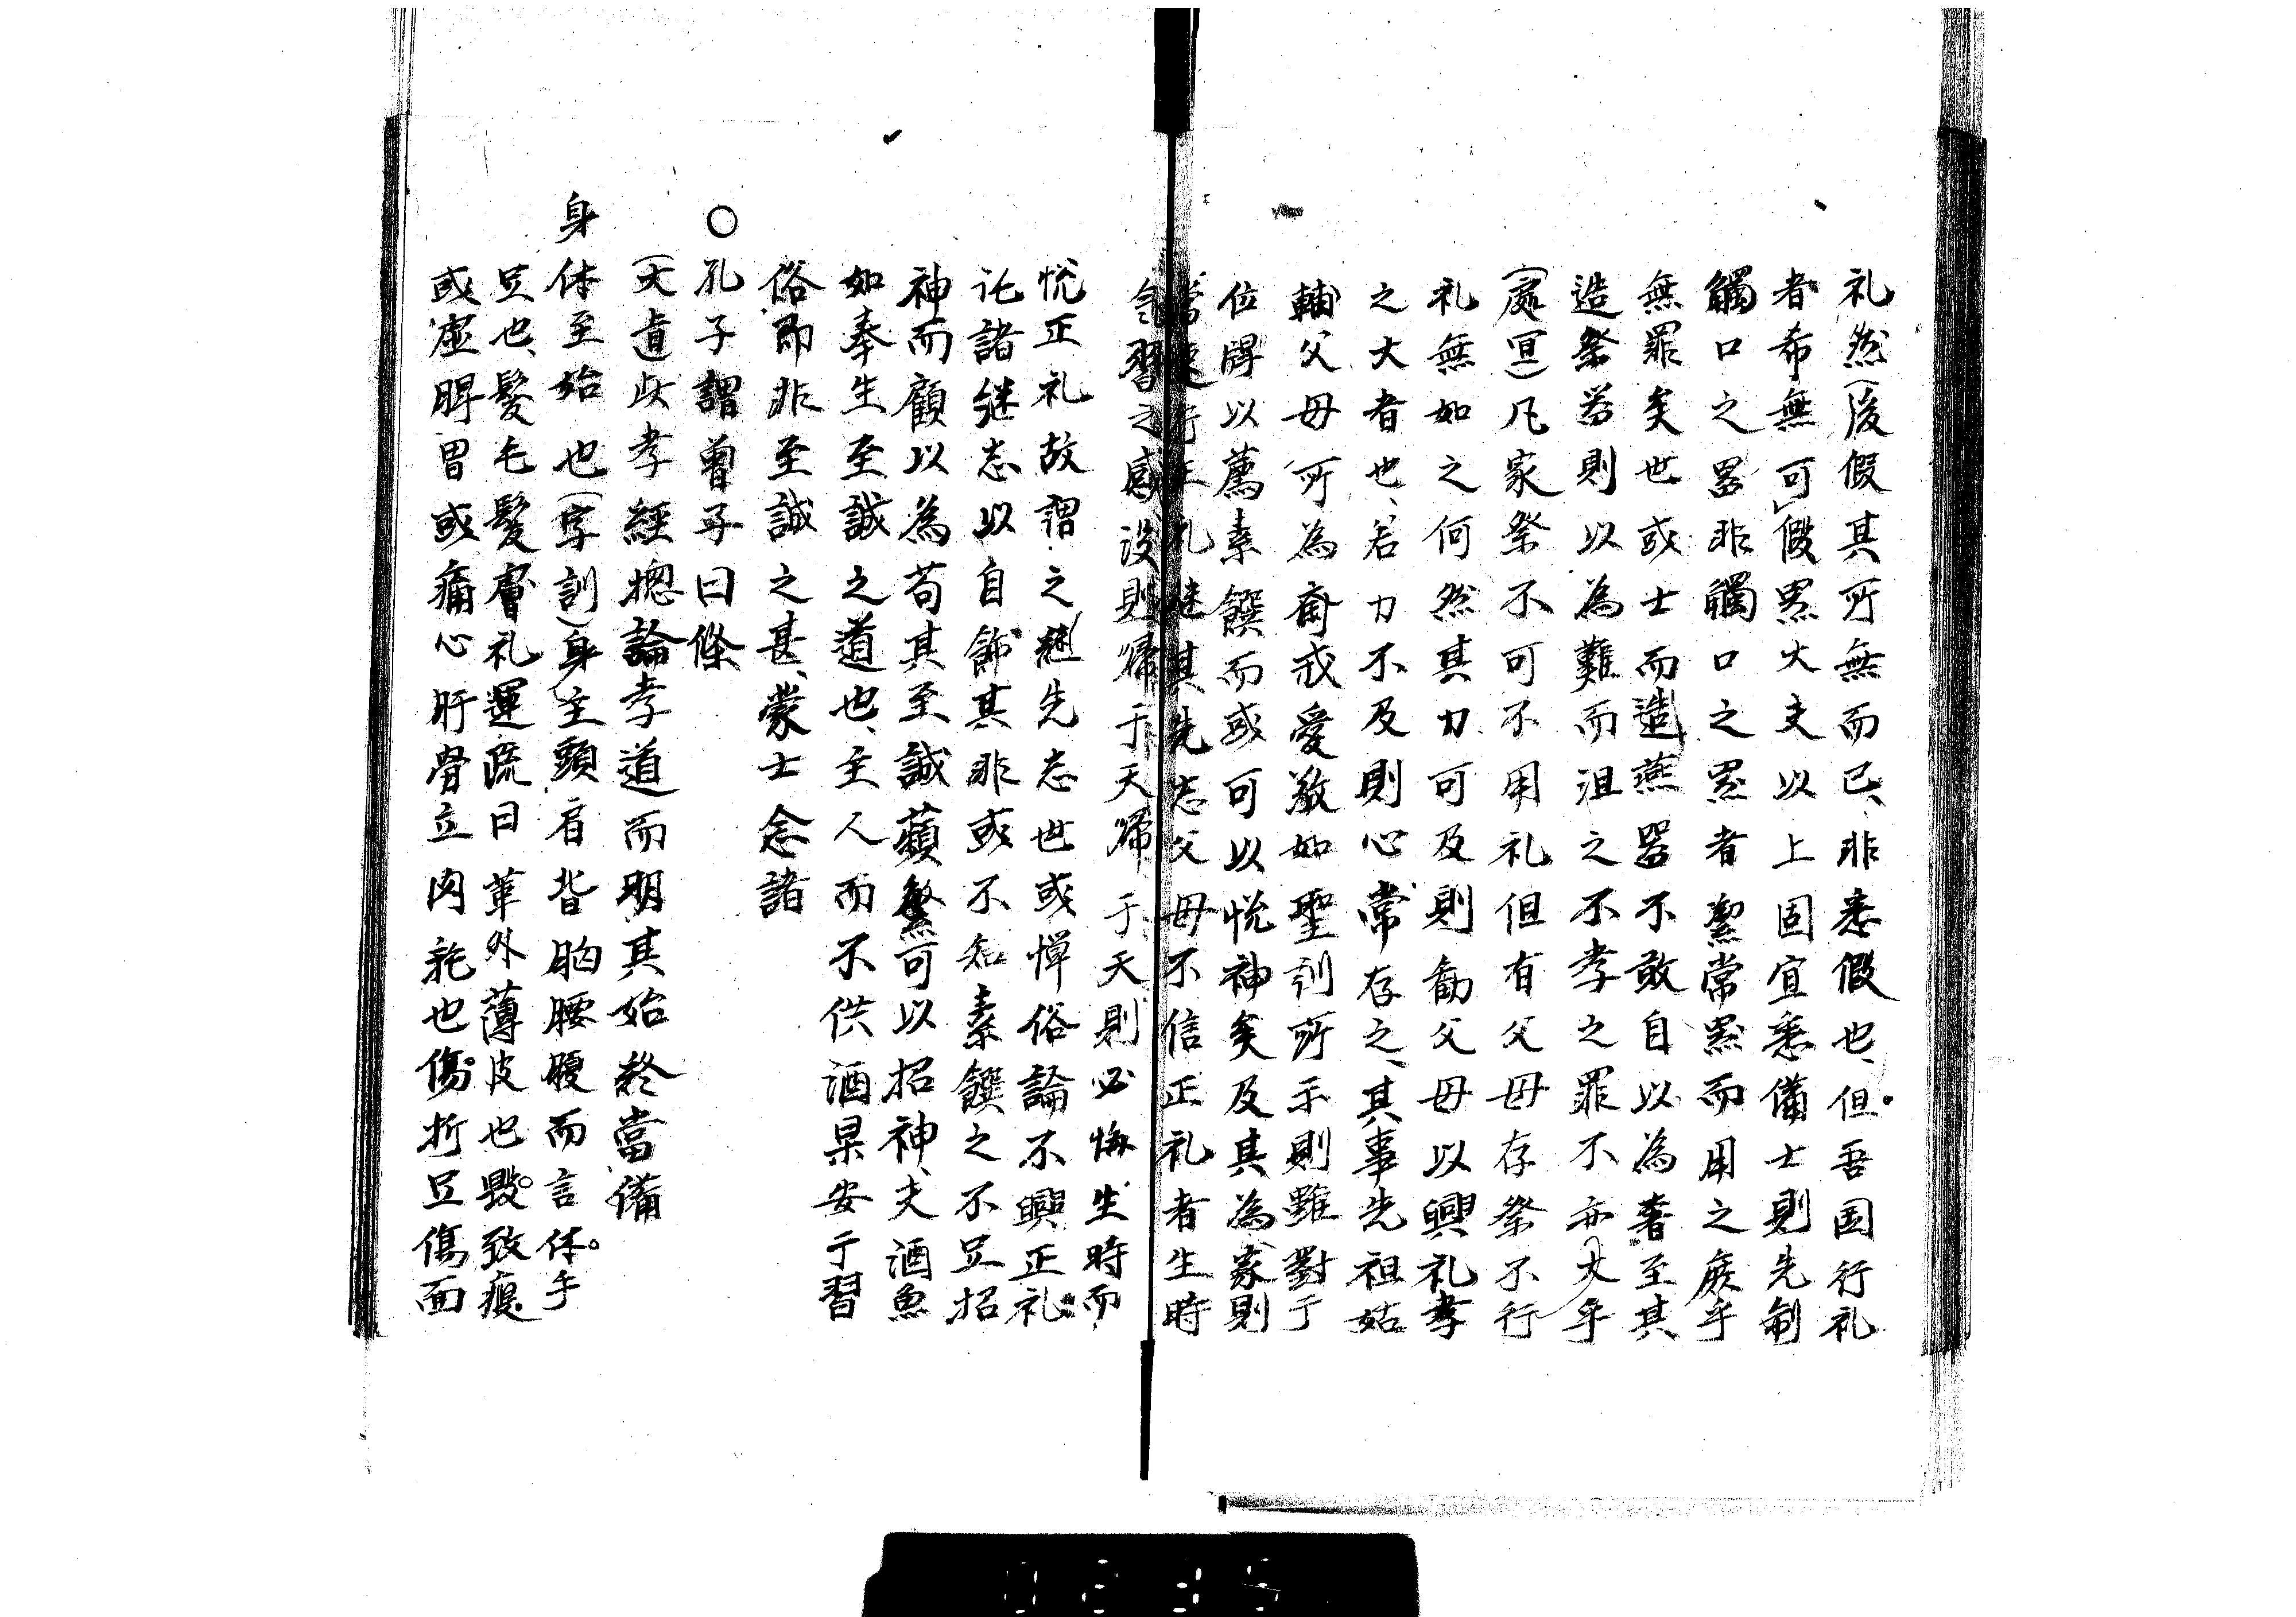 礼然後假其所無而已、非悉假也、但吾国行礼
者希無可假噐大夫以上固宜悉備士則先制
觸口之噐非觸口之噐者潔常噐而用之庻乎
無罪矣世或士而造燕噐不敢自以為奢至其
造祭噐則以為難而沮之不孝之罪不亦大乎
凡家祭不可不用礼但有父母存祭不行
礼無如之何然其力可及則勧父母以興礼孝
之大者也、若力不及則心常存之、其事先祖姑
輔父母所為斎戒愛敬如聖訓所示則雖對于
位牌以薦素饌而或可以悦神矣及其為家則
當速行正礼継其先志父母不信正礼者生時
氣習之惑没則帰于天帰于天則必悔生時而
悦正礼故謂之継先志世或憚俗論不興正礼
託諸継志以自飾其非或不知素饌之不足招
神而顧以為苟其至誠蘋蘩可以招神、夫酒魚
如奉生至誠之道也、主人而不供酒果安于習
俗即非至誠之甚、蒙士念諸
○孔子謂曽子曰條
大旨此孝經揔論孝道而明其始終當備
身体至始也(字訓)身主頭肩背胸腰腹而言体手
足也、髮毛髮膚礼運疏曰革外薄皮也毀致瘦
或虚脾胃或痛心肝骨立肉耗也傷折足傷面